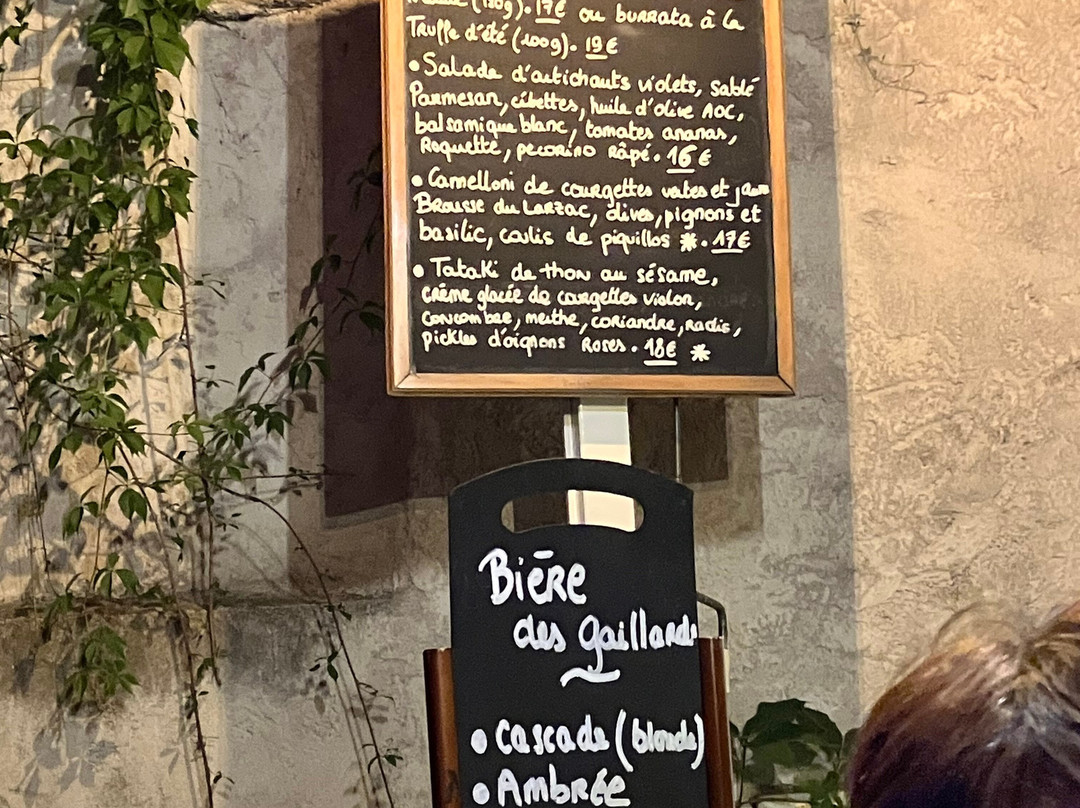 (120g). 17€ ou burrata à la
Truffe d'été (100g). 19€
• Salade d'artichauts violets, sablé
Parmesan, cébettes, huile d'olive AOC,
balsamique blanc, tomates ananas,
Roquette, pecorino râpé. 16€
• Cannelloni de courgettes vertes et
Brousse du Larzac, olives, pignons et
basilic, coulis de piquillos *. 17€
• Tataki de thon au sésame,
crème glacée de courgettes violon,
concombre, menthe, coriandre, radis,
pickles d'oignons Roses. 18€ *
Bière
des gaillards
• Cascade (blonde)
• Ambrée